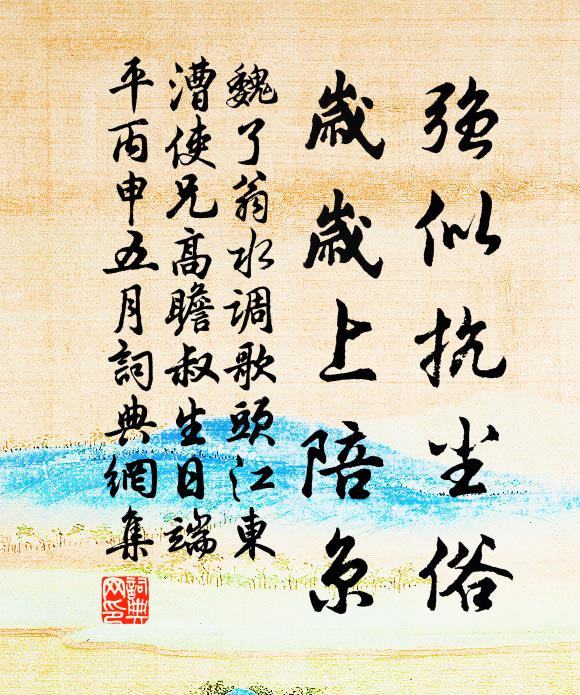 强似抗尘俗
歲歲上陪京
魏了翁水调歌頭江東
漕使兄高瞻叔生日端
平丙申五月詞典網集
詞典
网印